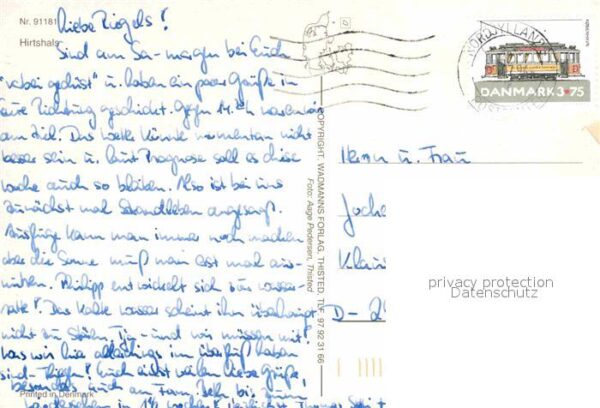 Nr. 91181
Hirtshals
Liebe Riegels!
Sind am Sa-morgen bei Euch
"vorbei gedüst" u. haben ein paar Grüße in
eure Richtung geschickt. Gegen 14.00h waren wir
am Ziel. Das Wetter könnte momentan nicht
besser sein u. laut Prognose soll es diese
Woche auch so bleiben. Also ist bei uns
zunächst mal Strandleben angesagt.
Ausflüge kann man immer noch machen
aber die Sonne muß man erst mal aus-
nützen. Philipp entwickelt sich zur Wasser-
ratte! Das kalte Wasser scheint ihn überhaupt
nicht zu stören. - und wir müssen mit!
Was wir hier allerdings im Überfluß haben
sind - Fliegen! Euch allen vielen liebe Grüße,
besonders auch am
in 1½ Wochen! Thomas
Printed in Denmark
COPYRIGHT: WADMANNS FORLAG, THISTED. TLF. 97 92 31 66
Foto: Aage Pedersen, Thisted
NORDJYLLANDS
DANMARK 3.75
Herrn u. Frau
Joche
Klau
D-2
privacy protection
Datenschutz